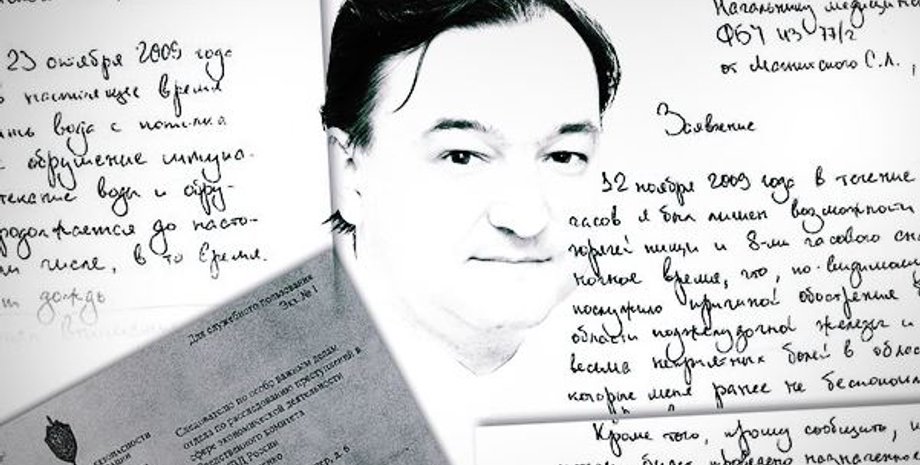 23 октября 2009 года
настоящее время
вода с потолка
обрушение штука-
текание воды и обру-
родолжается до насто-
числе, в то время.
дождь
Начальнику медицинск
ФБУ ИЗ 77/2
от Магнитского С.Л.,
Заявление
12 ноября 2009 года в течение
часов я был лишен возможности
горячей пищи и 8-ми часового сна
ночное время, что, по-видимому
послужило причиной обострения
области поджелудочной железы и
весьма неприятных болей в облас
которые меня ранее не беспокоили
Кроме того, прошу сообщить,
будет проведено назначенное
Для служебного пользования
Экз. № 1
Следователю по особо важным делам
отдела по расследованию преступлений в
сфере экономической деятельности
ледственного комитета
ВД России
д. 6
ЕЗОПАСНОСТИ